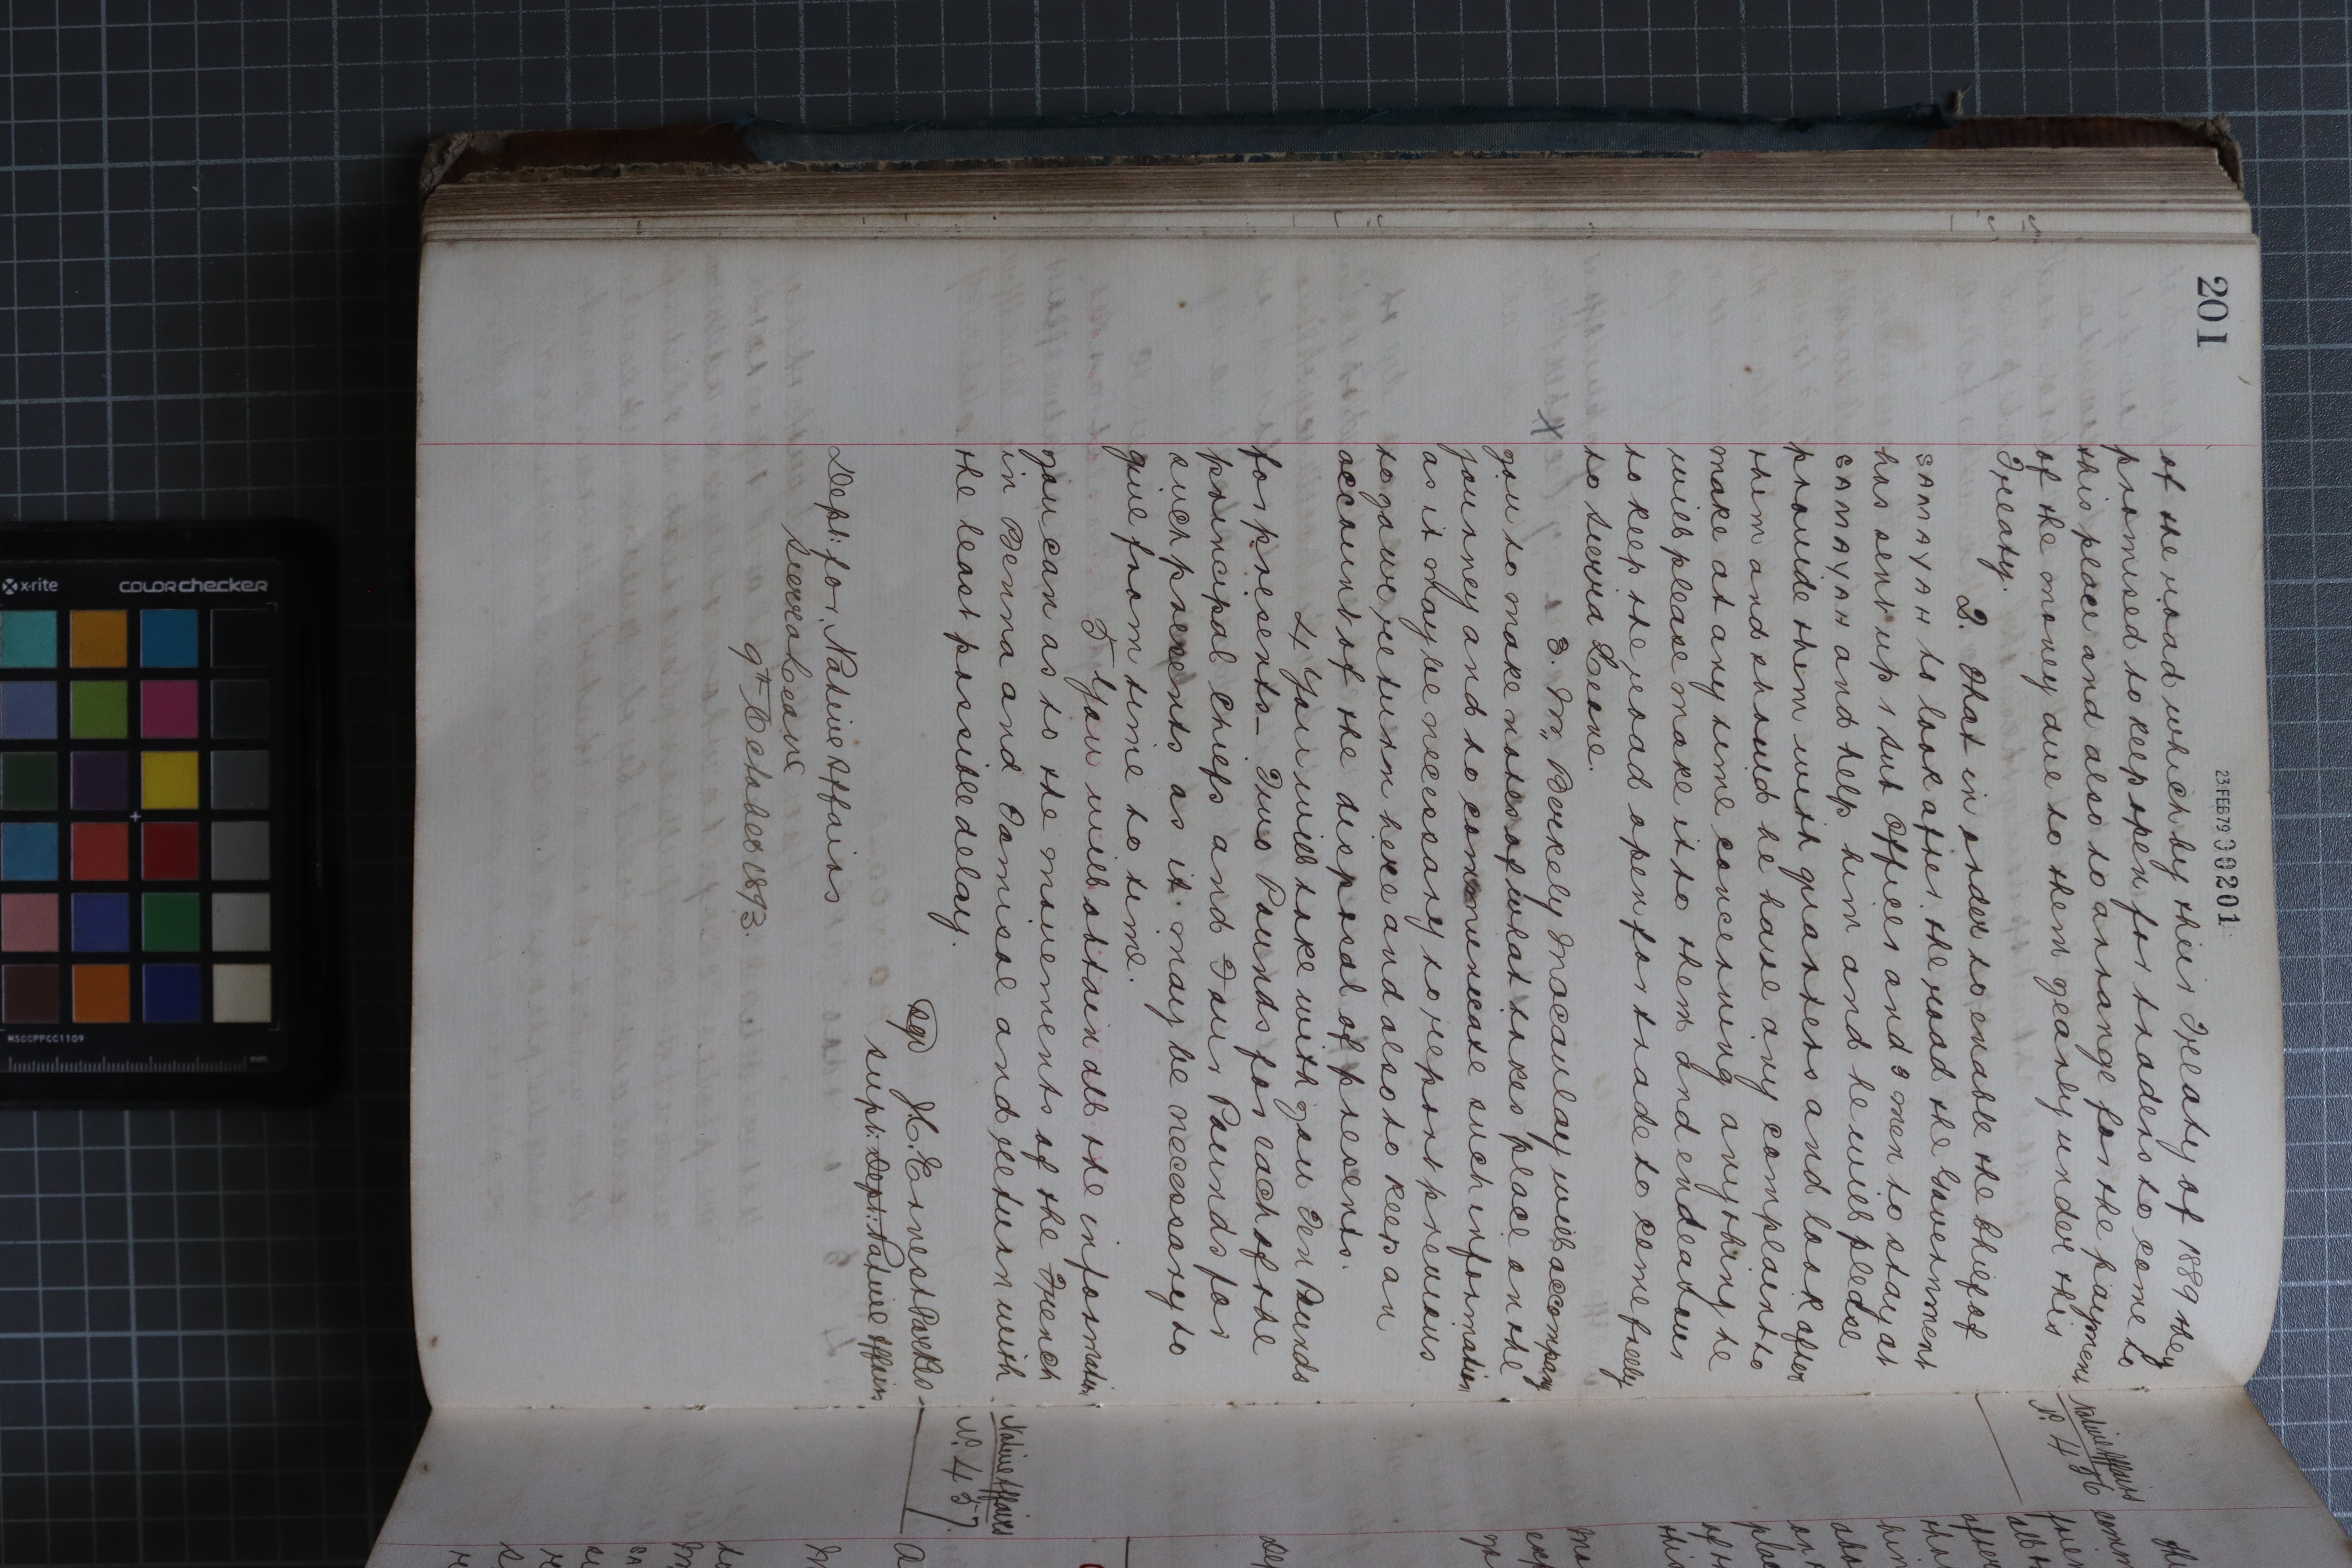 201
23 FEB 79 300201
of the road which by their Treaty of 1889 they
promised to keep open for traders to come to
this place and also to arrange for the payment
of the money due to them yearly under this
Treaty.
2. That in order to enable the Chief of
SAMAYAH to look after the road the Government
has sent up 1 Sub Officer and 3 men to stay at
SAMAYAH and help him and he will please
provide them with quarters and look after
them and should he have any complaint to
make at any time concerning anything he
will please make it to them and endeavour
to keep the road open for trade to come freely
to Sierra Leone.
X
3. Mr. Berkely Macaulay will accompany
you to make notes of what takes place on the
journey and to communicate such information
as it may be necessary to report previous
to your return here and also to keep an
account of the disposal of presents.
4 You will take with you Ten Pounds
for presents - Two Pounds for each of the
principal Chiefs and Four Pounds for
such presents as it may be necessary to
give from time to time.
5 You will obtain all the information
you can as to the movements of the French
in Benna and Tamisso and return with
the least possible delay.
Sgd J. C. Ernest Parkes
Supt: Dept: Native Affairs
Dept: for Native Affairs
Sierra Leone
9th October 1893.
Native Affairs
No. 436
Native Affairs
No. 437.
x-rite
COLORchecker
MSCCPPCC1109
mm